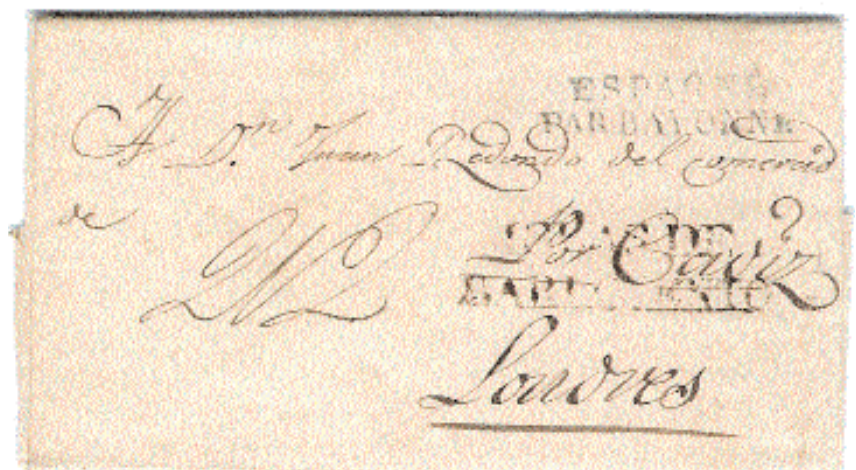 ESPAGNE
PAR BAYONNE
A Dⁿ Juan Redondo del comercio
de
Por Cadiz
Londres